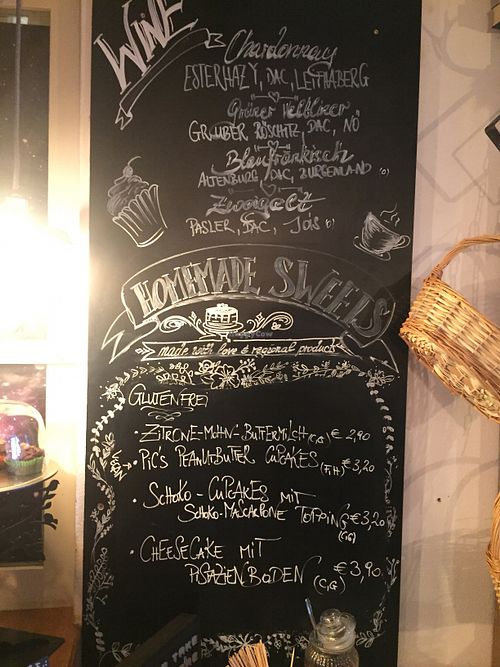 WINE
Chardonnay
ESTERHAZY, DAC, LEITHABERG
Grüner Veltliner
GRUBER RÖSCHITZ, DAC, NÖ
Blaufränkisch
ALTENBURG, DAC, BURGENLAND
Zweigelt
PASLER, DAC, JOIS
HOMEMADE SWEETS
made with love & regional products
GLUTENFREI
• ZITRONE-MOHN-BUTTERMILCH (C,G) € 2,90
VEGAN → PIC'S PEANUTBUTTER CUPCAKES (F,H) € 3,20
• SCHOKO-CUPCAKES MIT
SCHOKO-MASCARPONE TOPPING € 3,20
(C,G)
• CHEESECAKE MIT
PISTAZIENBODEN (C,G) € 3,90
TAKE